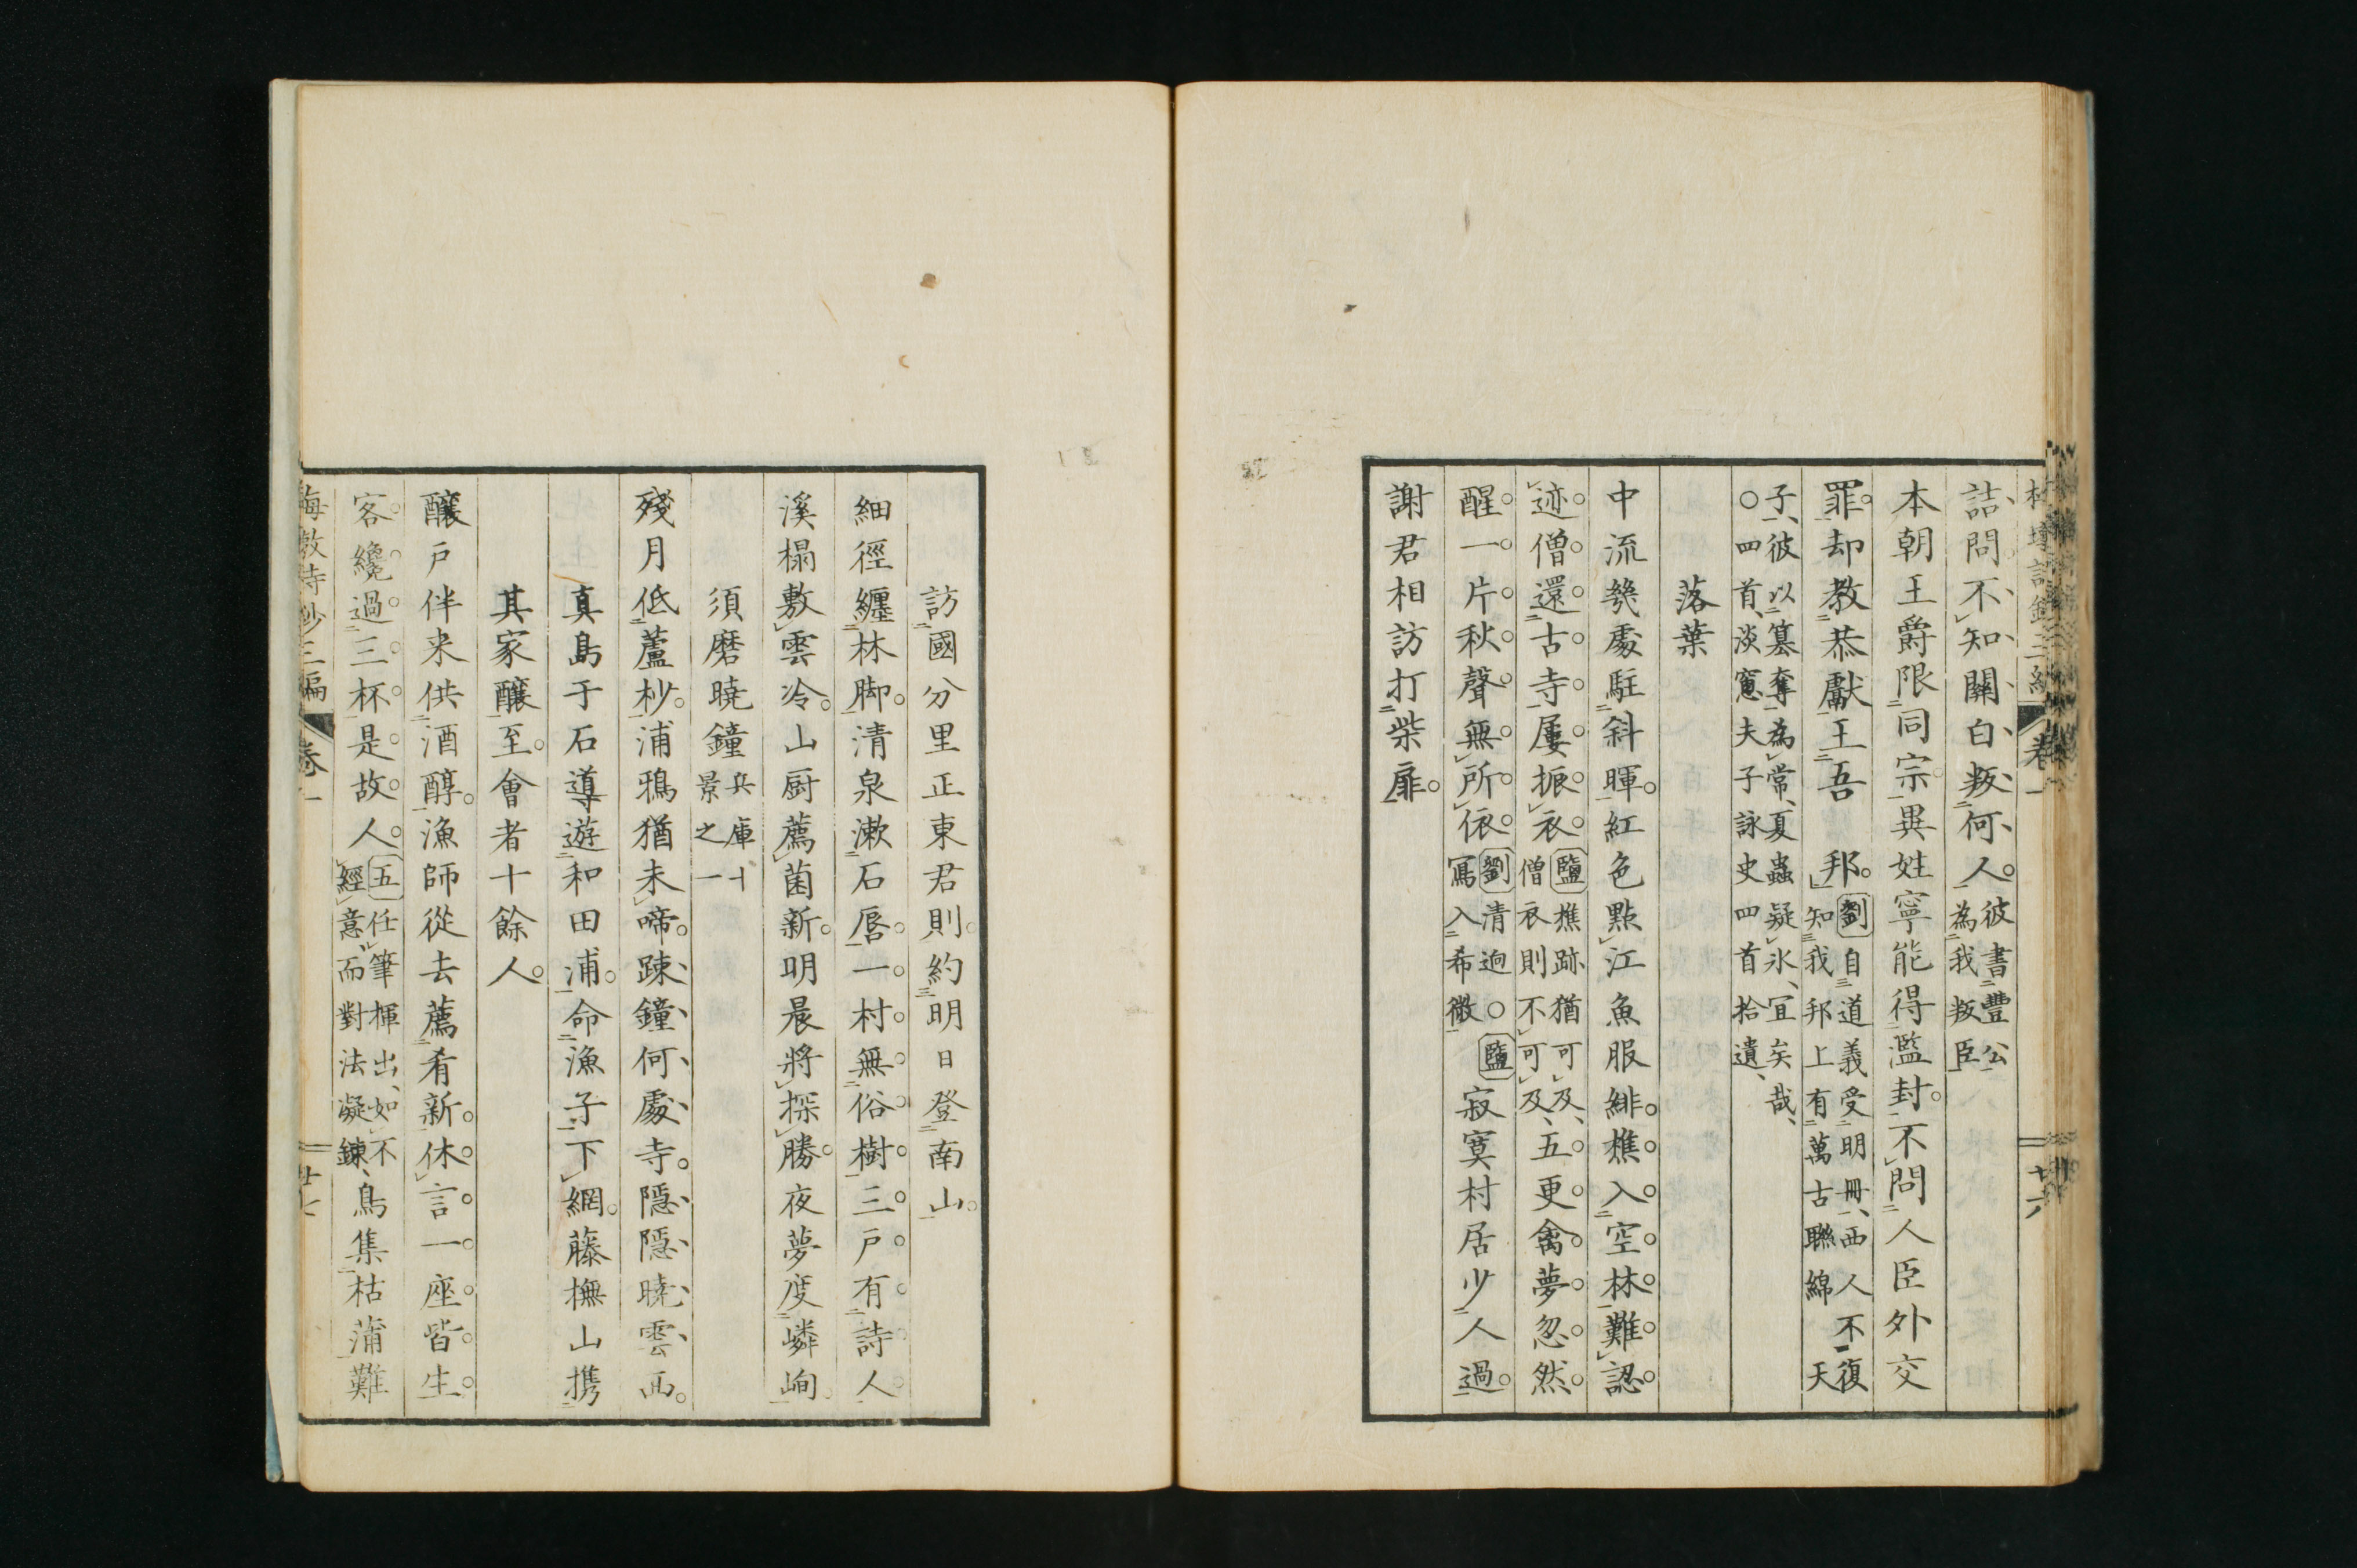 詰問不知關白叛何人彼書豐公為我叛臣
本朝王爵限同宗異姓寧能得濫封不問人臣外交
罪却教恭獻王吾 邦劉自道義受明冊西人不復知我邦上有萬古聯綿天
子彼以篡奪為常夏蟲疑氷宜矣哉○四首淡窻夫子詠史四首拾遺
落葉
中流幾處駐斜暉紅色點江魚服緋樵入空林難認
迹僧還古寺屢振衣鹽樵跡猶可及僧衣則不可及五更禽夢忽然
醒一片秋聲無所依劉清迥○寫入希微鹽寂寞村居少人過
謝君相訪打柴扉
卷一
廿六
訪國分里正東君則約明日登南山
細徑纏林脚清泉漱石唇一村無俗樹三戶有詩人
溪榻敷雲冷山厨薦菌新明晨將探勝夜夢度嶙峋
須磨曉鐘兵庫十景之一
殘月低蘆杪浦鴉猶未啼踈鐘何處寺隱隱曉雲西
真島于石導遊和田浦命漁子下網藤橅山携
其家釀至會者十餘人
釀戶伴来供酒醇漁師從去薦肴新休言一座皆生
客纔過三杯是故人五任筆揮出如不經意而對法凝鍊鳥集枯蒲難
梅墩詩鈔三編
卷一
廿七